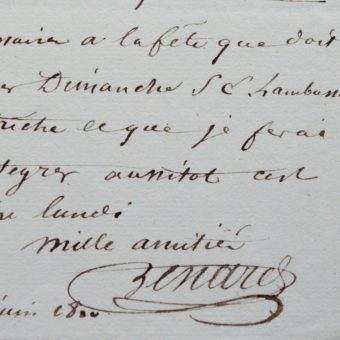 ssaire a la fête que doit
er Dimanche S E L'ambass
triche ce que je ferai
tegrer aussitot c'est
lundi
mille amitiés
Benard
juin 18